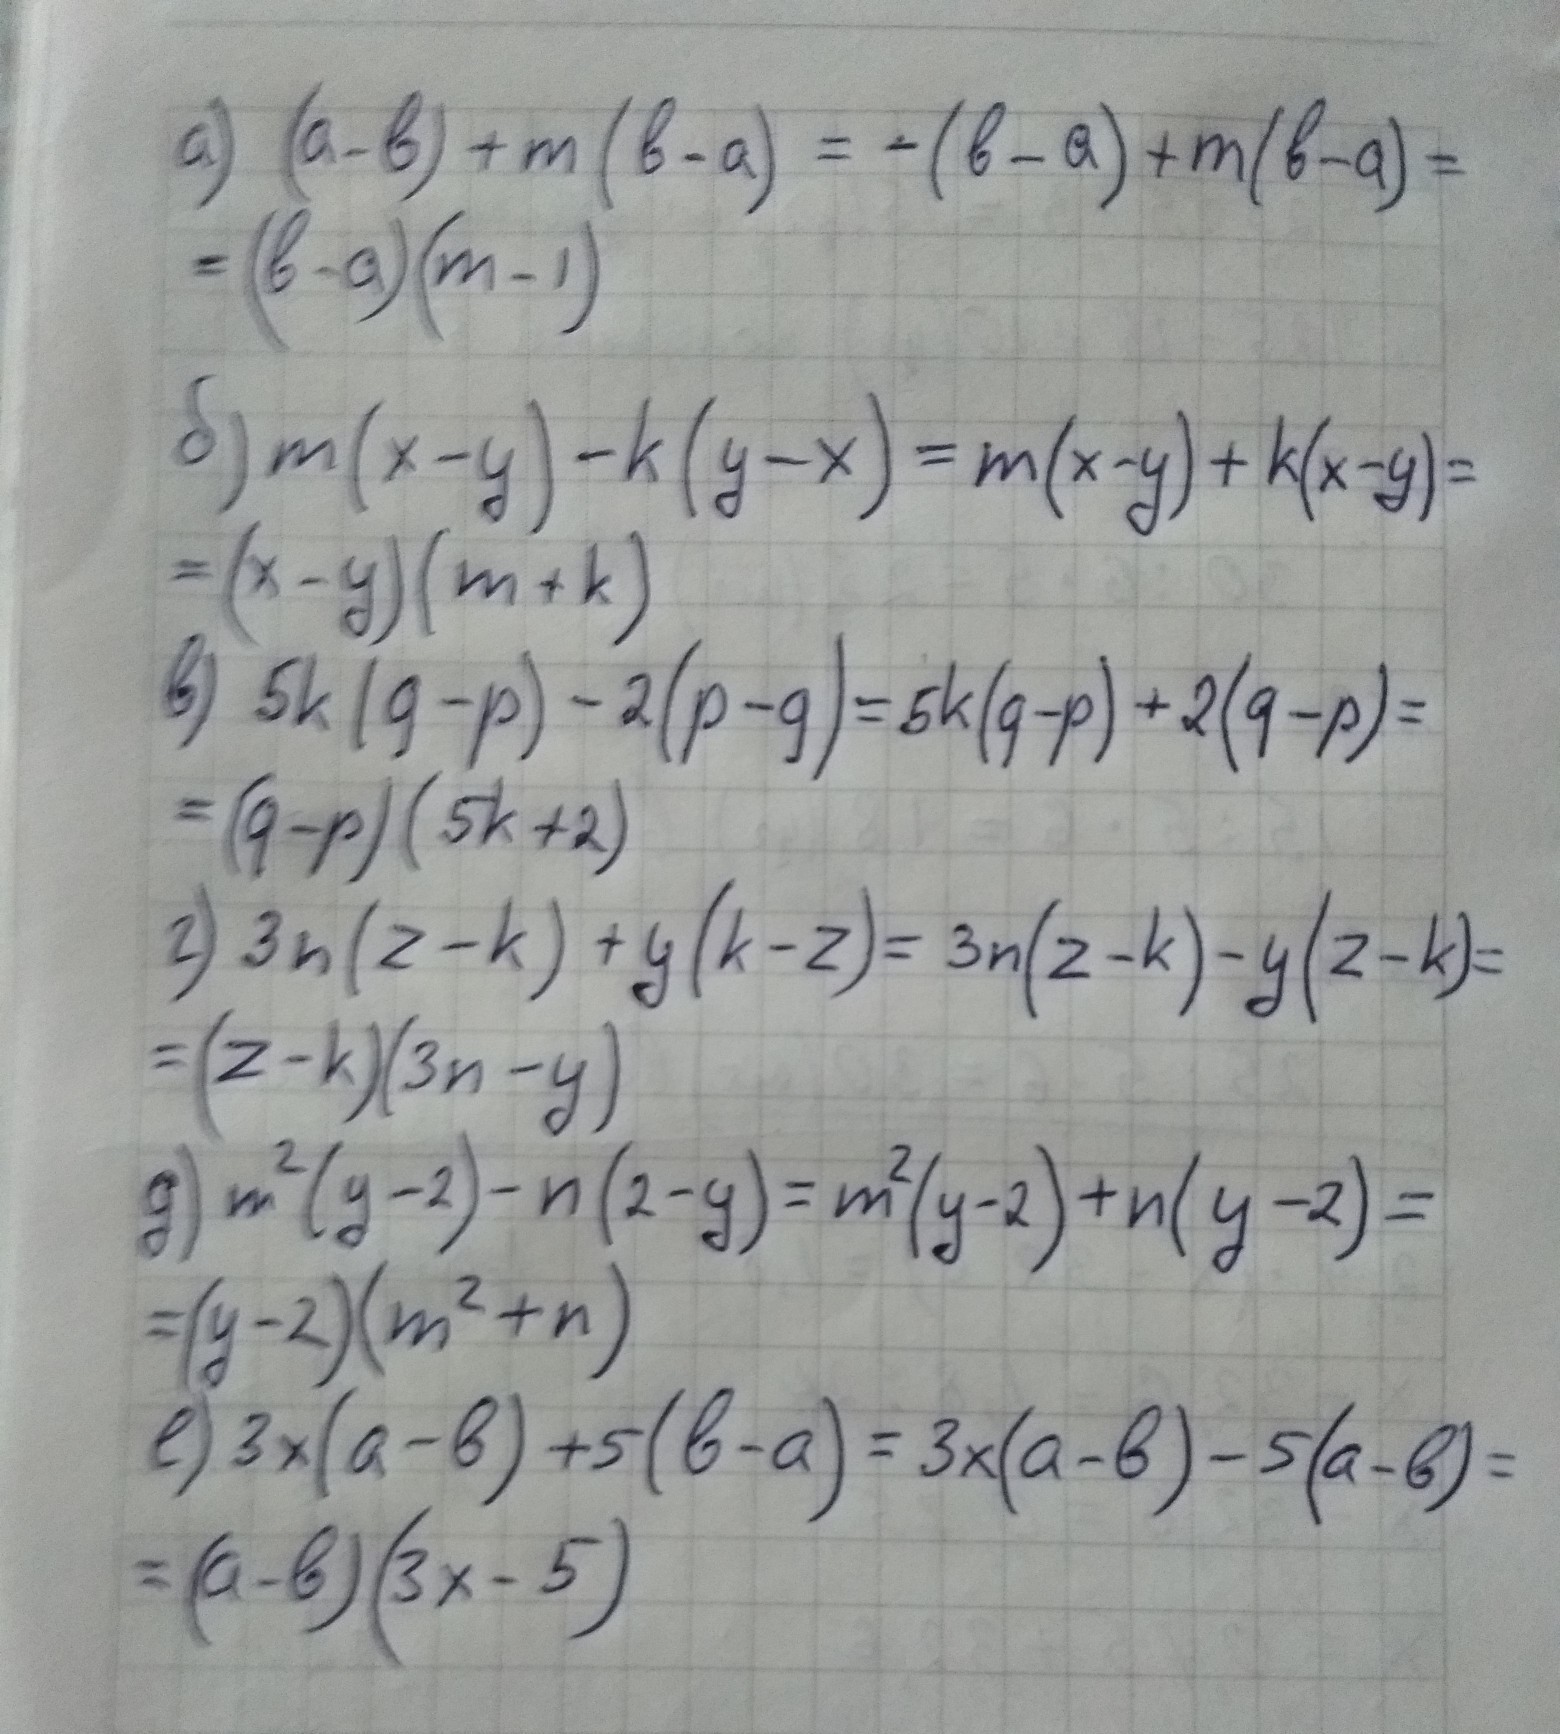 а) (a-b)+m(b-a)=-(b-a)+m(b-a)=
=(b-a)(m-1)
б) m(x-y)-k(y-x)=m(x-y)+k(x-y)=
=(x-y)(m+k)
в) 5k(q-p)-2(p-q)=5k(q-p)+2(q-p)=
=(q-p)(5k+2)
г) 3n(z-k)+y(k-z)=3n(z-k)-y(z-k)=
=(z-k)(3n-y)
д) m²(y-2)-n(2-y)=m²(y-2)+n(y-2)=
=(y-2)(m²+n)
е) 3x(a-b)+5(b-a)=3x(a-b)-5(a-b)=
=(a-b)(3x-5)